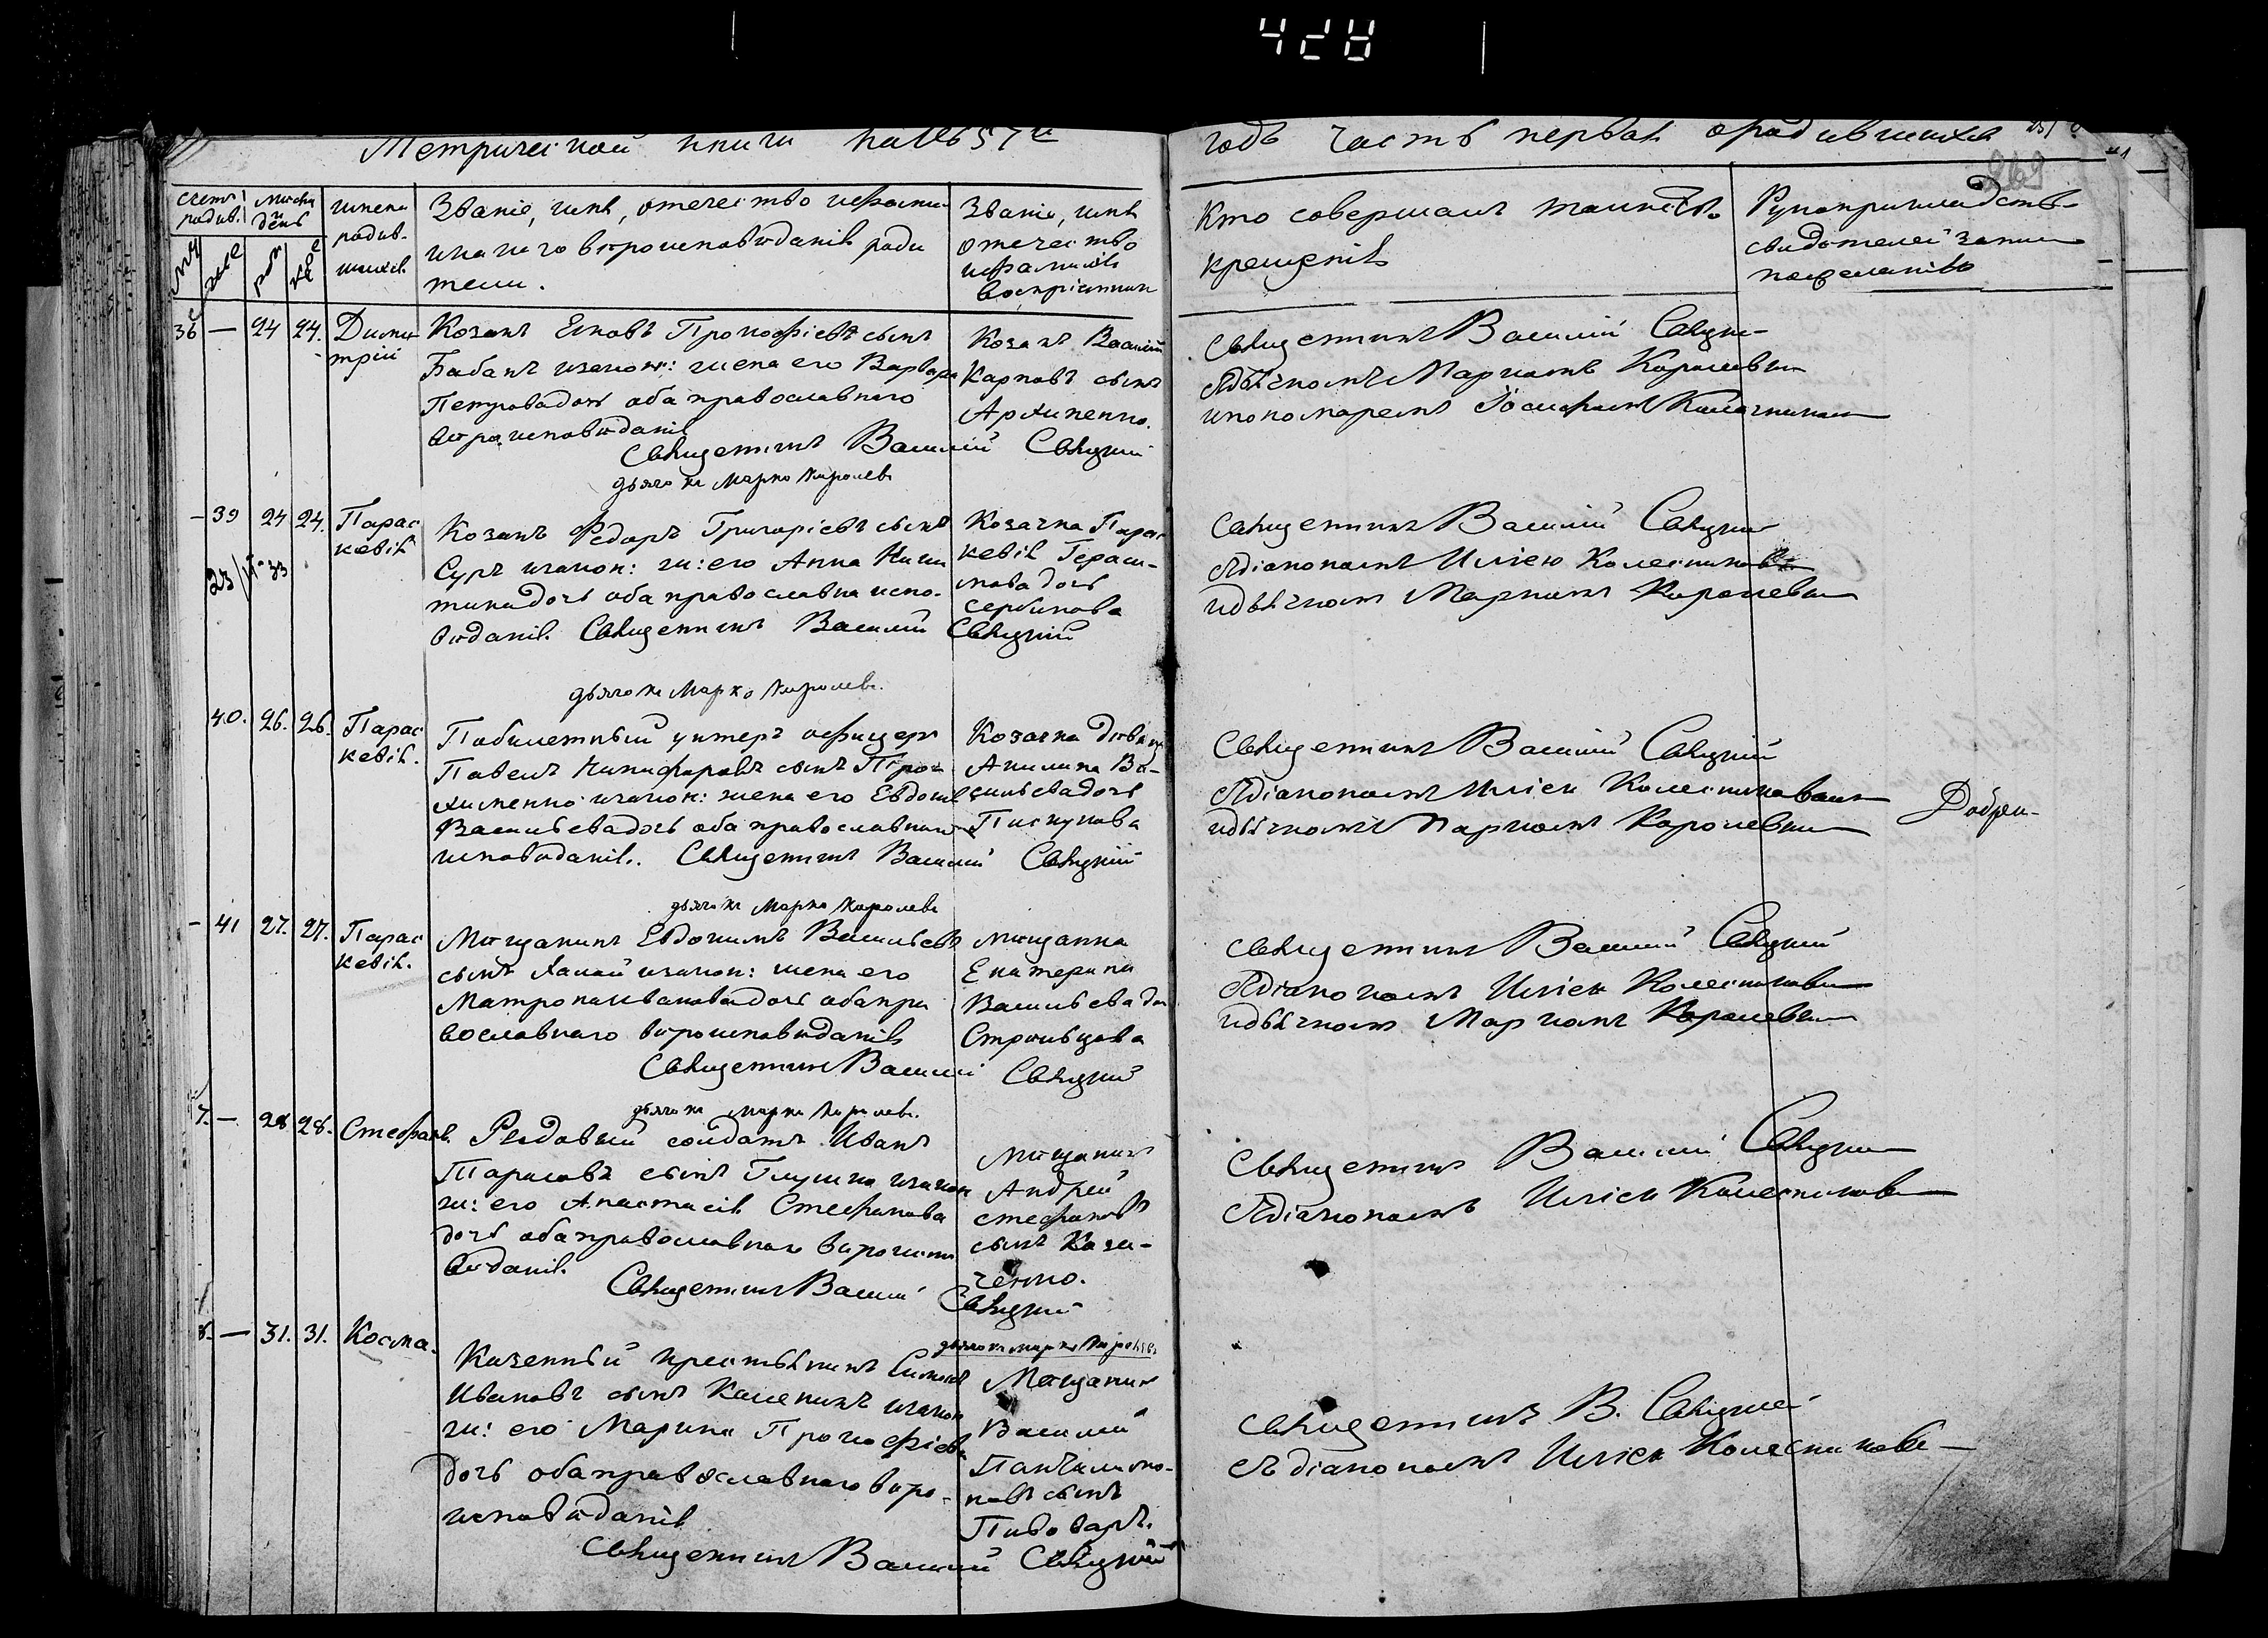 428
Метрической книги на 1857й
годъ часть первая о родившихся
269
счетъ родив.
муж
женс
месяцъ и день
рож
кре
имена родив-
шихся
Званіе, имя, отечество и фами-
лія и какого вѣроисповѣданія роди
тели.
Званіе, имя
отечество
и фамилія
воспріемник
Кто совершалъ таинство
крещенія
Рукоприкладство
свидѣтелей записи
по желанію
36 — 24 24. Дими
трій
Козакъ Яковъ Прокофіевъ сынъ
Бабакъ изакон: жена его Варвара
Петрова дочь оба православнаго
вѣроисповѣданія
Священникъ Василій Свѣцкій
дьячокъ Марко Королевъ
Козакъ Василій
Карповъ сынъ
Архипенко.
Священникъ Василій
съ дьячкомъ Маркомъ Королевым
и пономаремъ Іосифомъ
— 39 24 24. Парас
кевія
23/II-33
Козакъ Федоръ Григорієвъ сынъ
Суръ изакон: ж: его Анна Ники
тина дочь оба православна испо-
вѣданія. Священникъ Василій Свѣцкій
дьячокъ Марко Королевъ.
Козачка Парас
кевія Гераси-
мова дочь
Сербинова
Священникъ Василій
съ діакономъ Иліею Колесниковым
и дьячкомъ Маркомъ Королевым
40. 26. 26. Парас
кевія.
Побилетный унтеръ офицеръ
Павелъ Никифоровъ сынъ
изакон: жена его Евдокія
Васильева дочь оба православнаго
исповѣданія. Священникъ Василій Свѣцкій
дьячокъ Марко Королевъ
Козачка дѣвица
Акилина Ва-
сильева дочь
Пискунова
Священникъ Василій Свѣцкій
съ діакономъ Иліею Колесниковым
и дьячкомъ Маркомъ Королевым
— 41 27. 27. Парас
кевія.
Мѣщанинъ Евдокимъ Васильевъ
сынъ изакон: жена его
Матрона Иванова дочь оба пра
вославнаго вѣроисповѣданія
Священникъ Василій Свѣцкій
дьячокъ Марко Королевъ.
мѣщанка
Екатерина
Васильева до
Священникъ Василій Свѣцкій
съ діакономъ Иліею Колесниковым
и дьячкомъ Маркомъ Королевым
7. — 28 28. Стефанъ.
Рядовый солдатъ Иванъ
Тарасовъ сынъ Глушко изакон
ж: его Анастасія Стефанова
дочь оба православнаго вѣроиспо
вѣданія.
Священникъ Василій Свѣцкій
дьячокъ Марко Королевъ
Мѣщанинъ
Андрей
Стефановъ
сынъ Кази-
ченко.
Священникъ Василій
съ діакономъ Иліею Колесниковым
8. — 31. 31. Косма.
Казенный крестьянинъ Симонъ
Ивановъ сынъ изакон
ж: его Марина Прокофіева
дочь оба православнаго вѣро-
исповѣданія
Священникъ Василій Свѣцкій
Мѣщанинъ
Василій
Пантилимо-
новъ сынъ
Пивоваръ.
Священникъ В. Свѣцкій
съ діакономъ Иліею Колесниковы